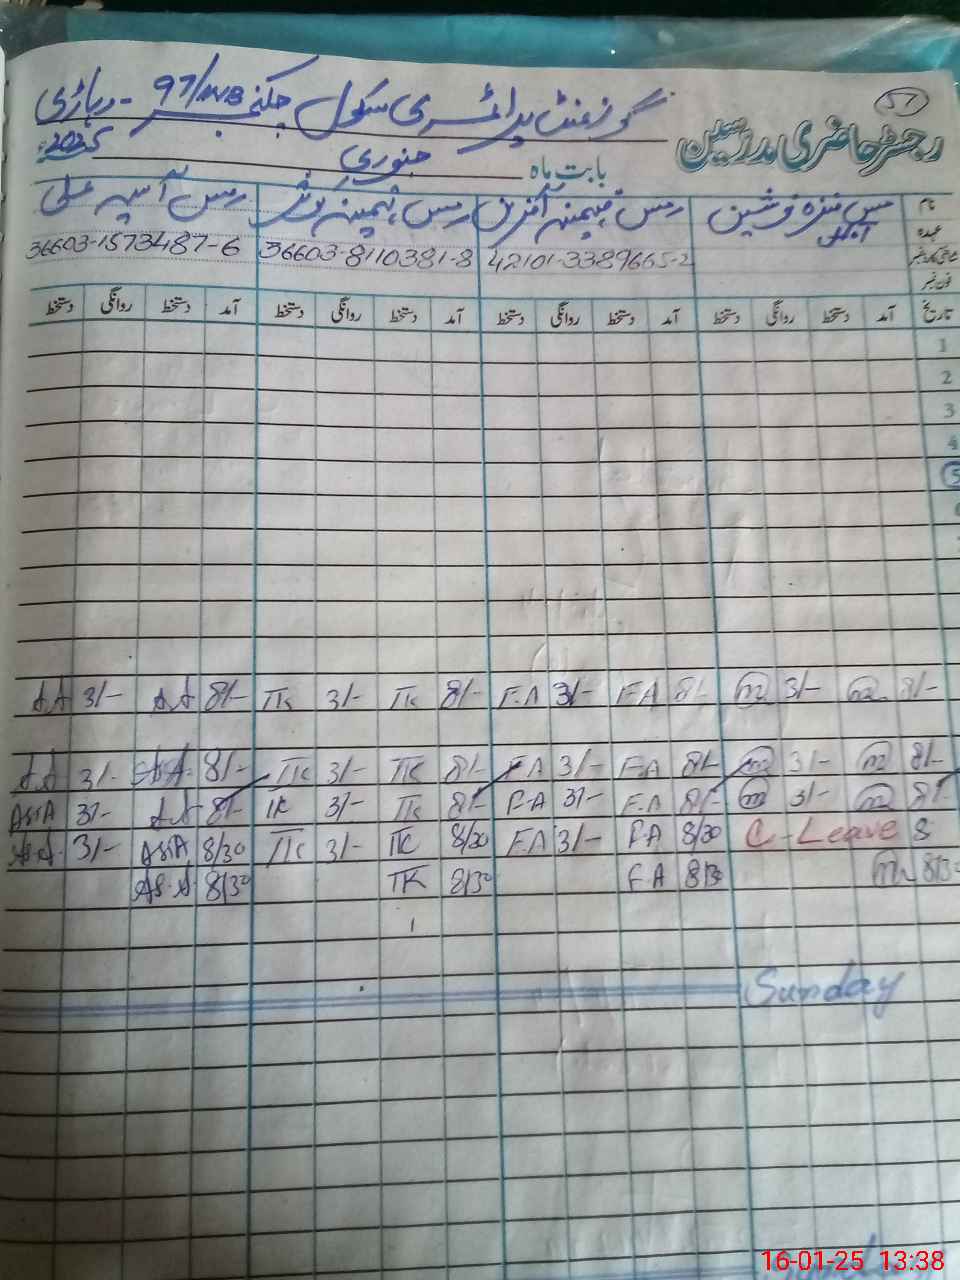 57
گورنمنٹ پرائمری سکول چک نمبر 97/WB - وہاڑی
رجسٹر حاضری مدرسین
بابت ماہ جنوری 2025ء
نام مس آسیہ علی
عہدہ
شناختی کارڈ نمبر 42101-3389665-2 36603-8110381-8 36603-1573487-6
فون نمبر
تاریخ آمد دستخط روانگی دستخط آمد دستخط روانگی دستخط آمد دستخط روانگی دستخط آمد دستخط روانگی دستخط
1
2
3
4
5
6
A.A 3/- A.A 8/- TK 3/- TK 8/- F.A 3/- F.A 8/- m 3/- m 8/-
A.A 3/- A.A 8/- TK 3/- TK 8/- F.A 3/- F.A 8/- m 3/- m 8/-
AsiA 3/- A.A 8/- TK 3/- TK 8/- F.A 3/- F.A 8/- m 3/- m 8/-
As.A 3/- AsiA 8/30 TK 3/- TK 8/30 F.A 3/- F.A 8/30 C-Leave 8
As.A 8/30 TK 8/30 F.A 8/30 m 8/30
Sunday
16-01-25 13:38